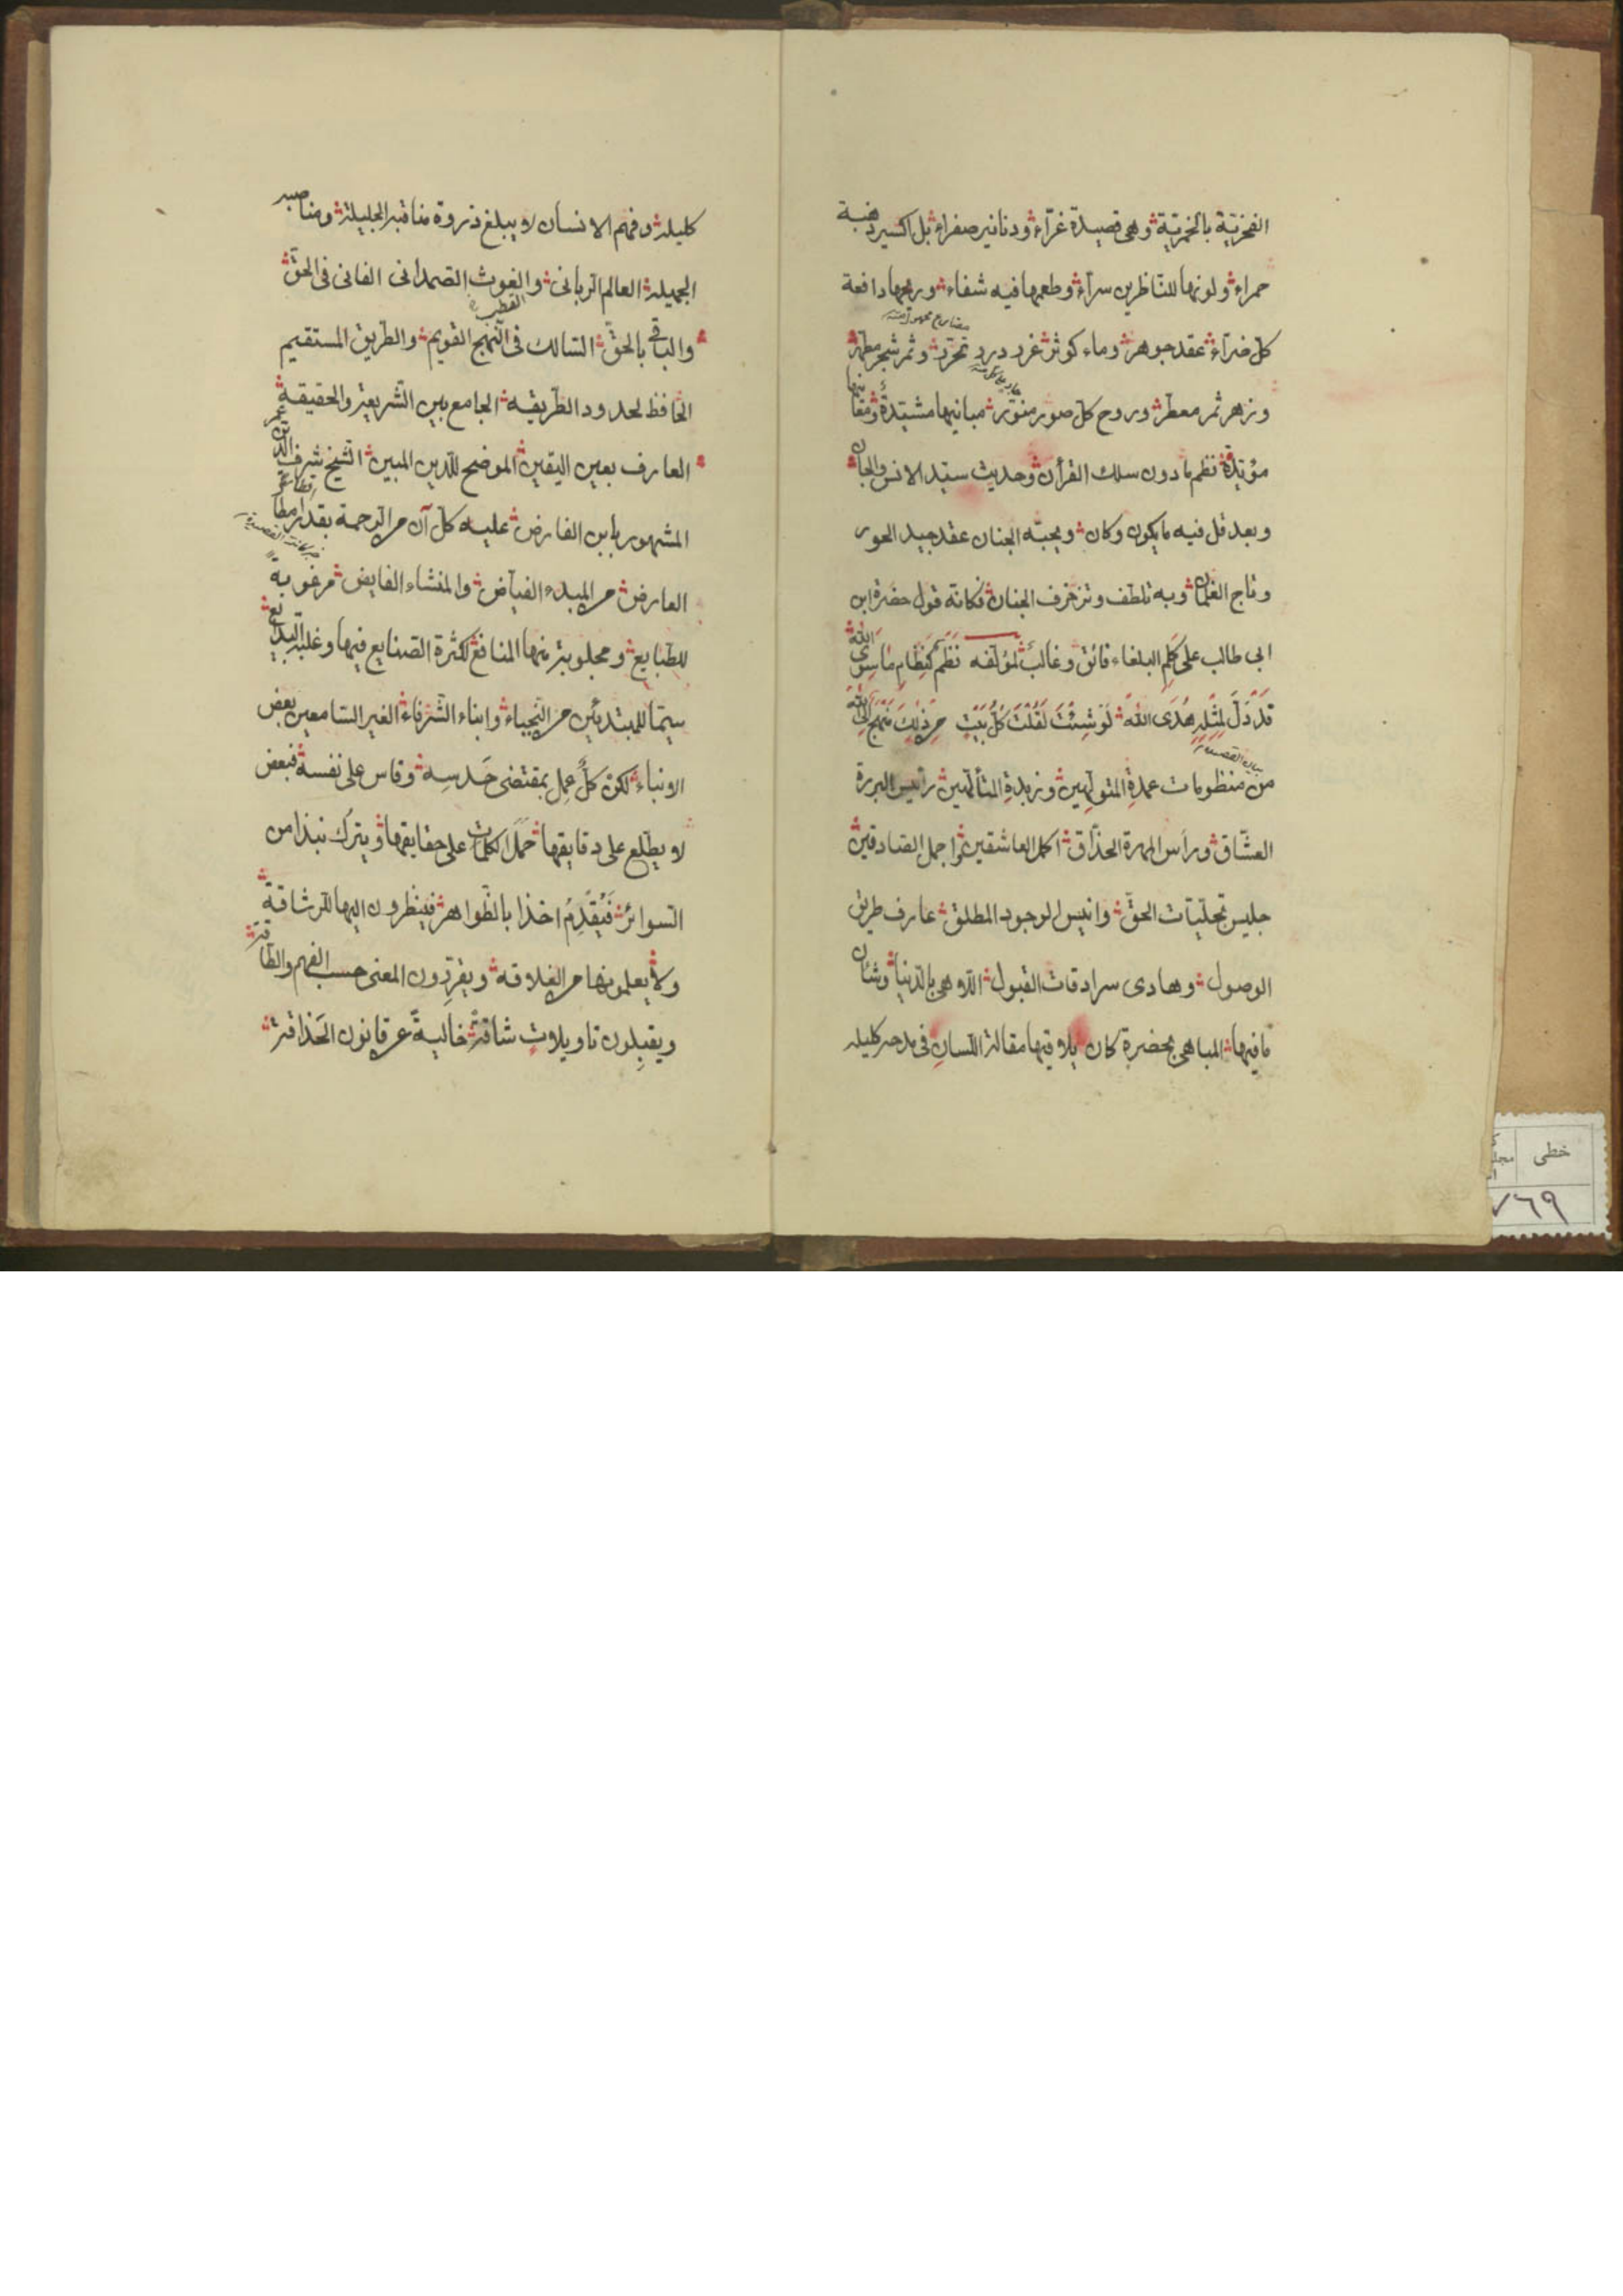 الفخريّة بالخمريّة وهى قصيدة غرّاء ودنانير صفراء بل اكسير ذهبية
حمراء ولونها للنّاظرين سرّاء وطعمها فيه شفاء وريحها دافعة
كلّ ضرّآء عقد جوهر وماء كوثر غرد درد تحرّد وثمر شجر مطهر
وزهر ثمر معطر وروح كلّ صور منوّر مبانيها مشيّدة ومعانيها
مؤيّدة نظم ما دون سلك القرآن وحديث سيّد الانس والجان
وبعد قل فيه ما يكون وكان ويحبّه الجنان عقد جيد الحور
وتاج الغلمان وبه تلطف وتزخرف الجنان فكانّه قول حضرة ابن
ابى طالب على كَلِمِ البلغاء فائق وغالب لمؤلّفه نَظْمٌ كَنِظَامِ مَا سِوَى اللّه
قَدْ دَلَّ لِمِثْلِهِ هُدَى اللّه لَوْ شِئْتَ لَقُلْتَ كُلُّ بَيْتٍ مِن ذٰلِكَ مَنْهَجٌ اِلَى اللّه
بيان القصيدة
من منظومات عمدة المتولّهين وزبدة المتألّهين رئيس البررة
العشّاق ورأس المهرة الحذّاق اكمل العاشقين واجمل الصّادقين
جليس تجلّيات الحقّ وانيس الوجود المطلق عارف طريق
الوصول وهادى سرادقات القبول اللاهى بالدّنيا وشان
ما فيها المباهى بحضرة كان يلاقيها مقالة اللّسان فى مدحه كليله
كليلة وفهم الانسان لا يبلغ ذروة مناقبه الجليلة ومناصبه
الجميلة العالم الرّبانى والغوث الصّمدانى الفانى فى الحقّ
القطب
والباقى بالحقّ السّالك فى النّهج القويم والطّريق المستقيم
الحافظ لحدود الطّريقة الجامع بين الشّريعة والحقيقة
العارف بعين اليقين الموضح للدّين المبين الشّيخ شرف الدّين عمر
المشهور بابن الفارض عليه كلّ آن من الرّحمة بقدر امطار
العارض من المبدء الفيّاض والمنشاء الفايض مرغوبة
للطّبايع ومجلوبة منها المنافع لكثرة الصّنايع فيها وغلبة البدايع
سيّما للمبتدئين من النّجباء وابناء الشّرفاء الغير السّامعين بعض
الانباء لكن كلٌّ عمل بمقتضى حَدسِه وقاس على نفسه فبعض
لا يطّلع على دقايقها حَمَلَ الكلمات على حقايقها ويترك نبذا من
السّوائر فيُقدِمُ اخذا بالظّواهر فينظرون اليها للرّشاقة
ولا يعلمونها من الغلاقة ويقرّرون المعنى حسب الفهم والطّاقة
ويقبلون تاويلاتٍ شاقّة خاليةً عن قانون الحَذاقة
خطى
٧٦٩